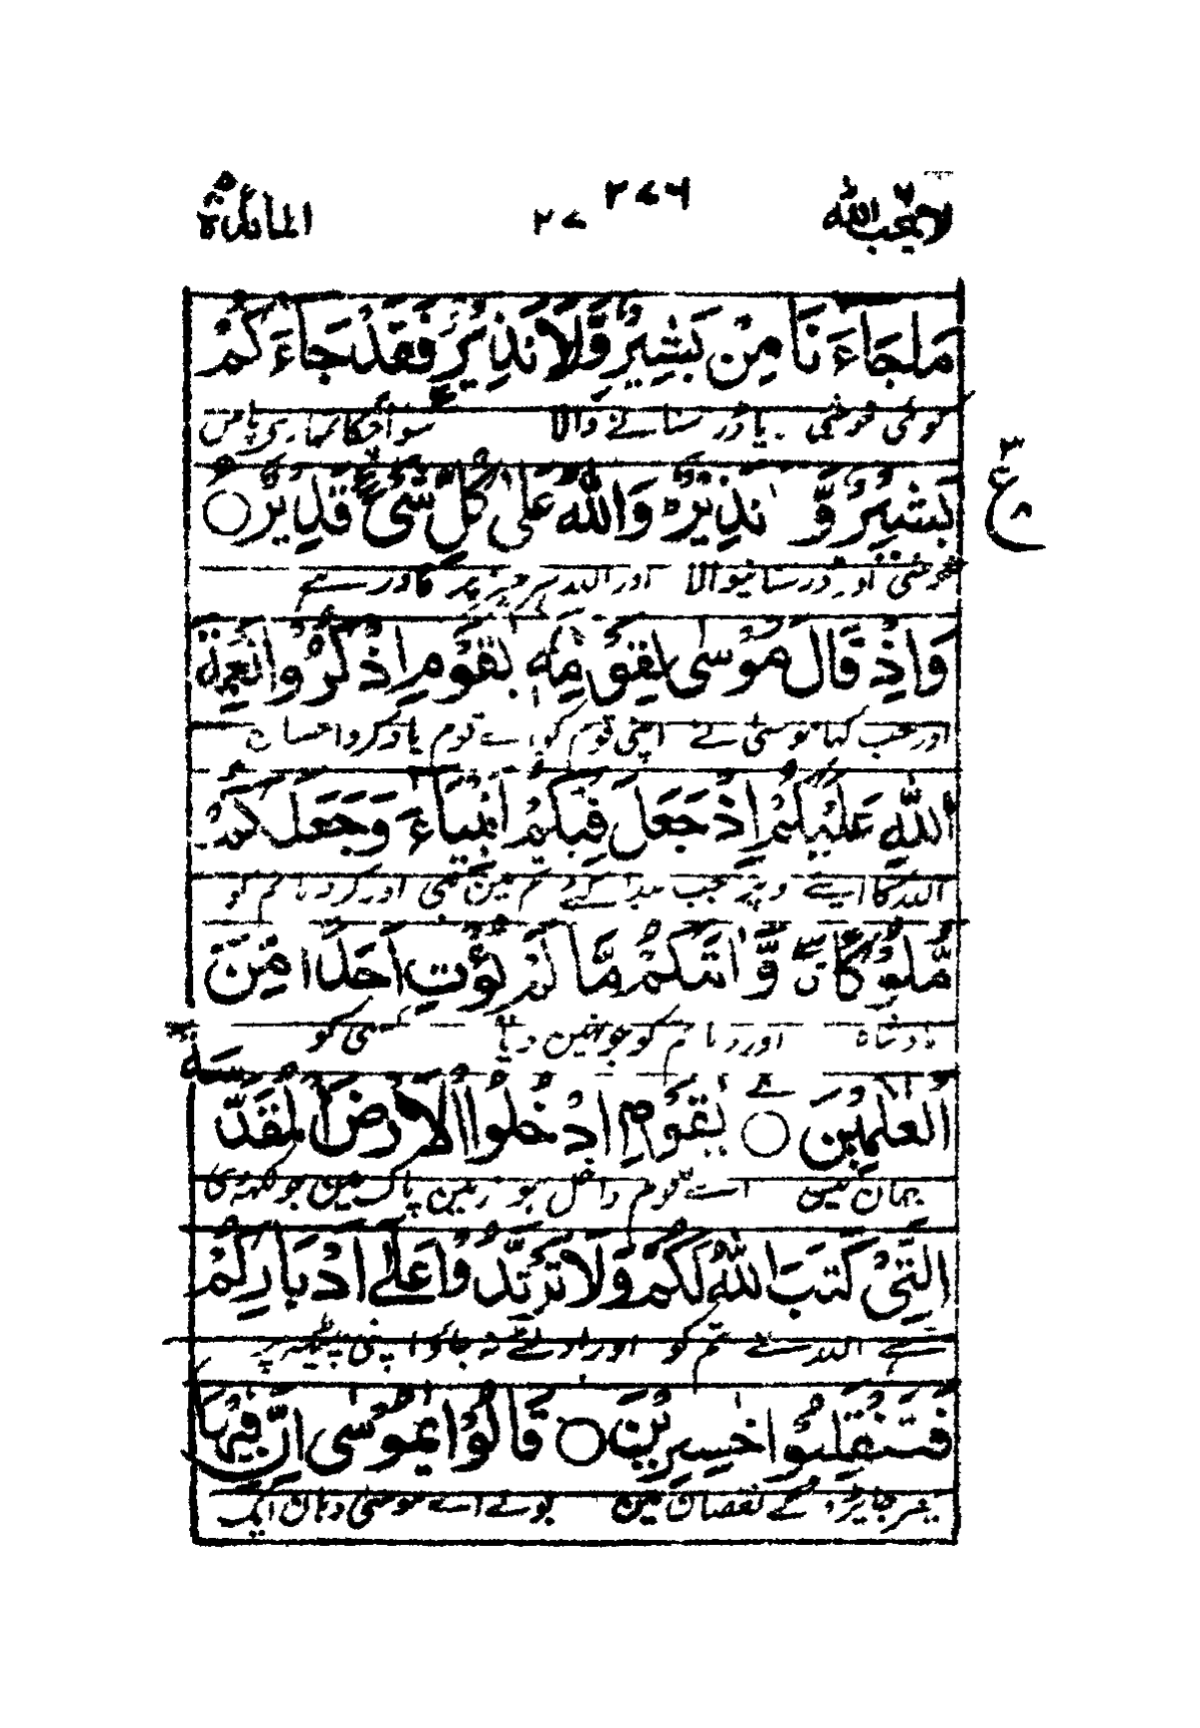 لا یحب اللہ ۶
۲۷۶
۲۷
المائدۃ ۵
مَا جَآءَنَا مِنْۢ بَشِيْرٍ وَّلَا نَذِيْرٍ فَقَدْ جَآءَكُمْ
کوئی خوشی یا ڈر سنانے والا سو آچکا تمہاری پاس
بَشِيْرٌ وَّ نَذِيْرٌ وَاللّٰهُ عَلٰى كُلِّ شَيْءٍ قَدِيْرٌ ○
ع ۳
خوشی اور ڈر سنانیوالا اور اللہ ہر چیز پر قادر ہے
وَاِذْ قَالَ مُوْسٰى لِقَوْمِهٖ يٰقَوْمِ اذْكُرُوْا نِعْمَةَ
اور جب کہا موسٰی نے اپنی قوم کو اے قوم یاد کرو احسان
اللّٰهِ عَلَيْكُمْ اِذْ جَعَلَ فِيْكُمْ اَنْۢبِيَآءَ وَجَعَلَكُمْ
اللہ کا اپنے وپر جب پیدا کئے تم مین نبی اور کر دیا تم کو
مُّلُوْكًا وَّاٰتٰىكُمْ مَّا لَمْ يُؤْتِ اَحَدًا مِّنَ
بادشاہ اور دیا تم کو جو نہین دیا کسی کو
الْعٰلَمِيْنَ ○ يٰقَوْمِ ادْخُلُوا الْاَرْضَ الْمُقَدَّسَةَ
جہان مین اے قوم داخل ہو زمین پاک مین جو لکہدی
الَّتِيْ كَتَبَ اللّٰهُ لَكُمْ وَلَا تَرْتَدُّوْا عَلٰٓى اَدْبَارِكُمْ
ہے اللہ نے تم کو اور اولٹے نہ جاؤ اپنی پیٹھہ پر
فَتَنْقَلِبُوْا خٰسِرِيْنَ ○ قَالُوْا يٰمُوْسٰٓى اِنَّ فِيْهَا
پھر جا پڑو گے نقصان مین بولے اے موسٰی وہان ایک